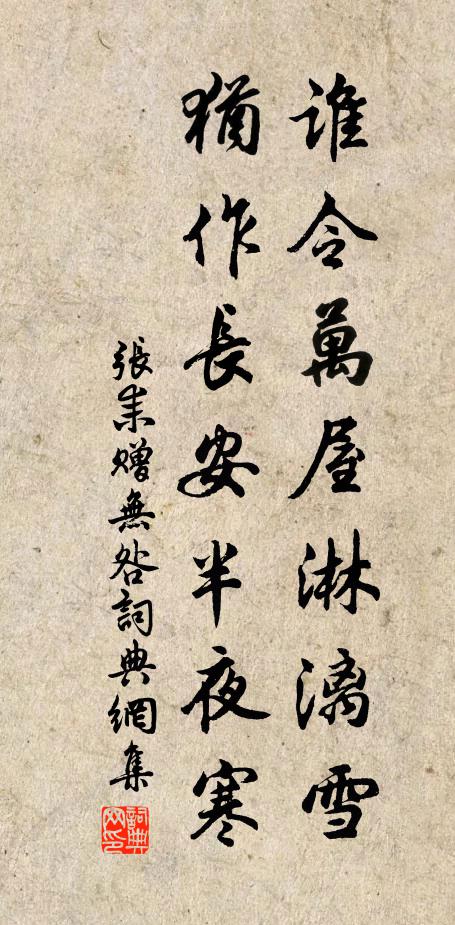 誰令萬屋淋漓雪
猶作長安半夜寒
張耒贈無咎詞典網集
詞典
网印